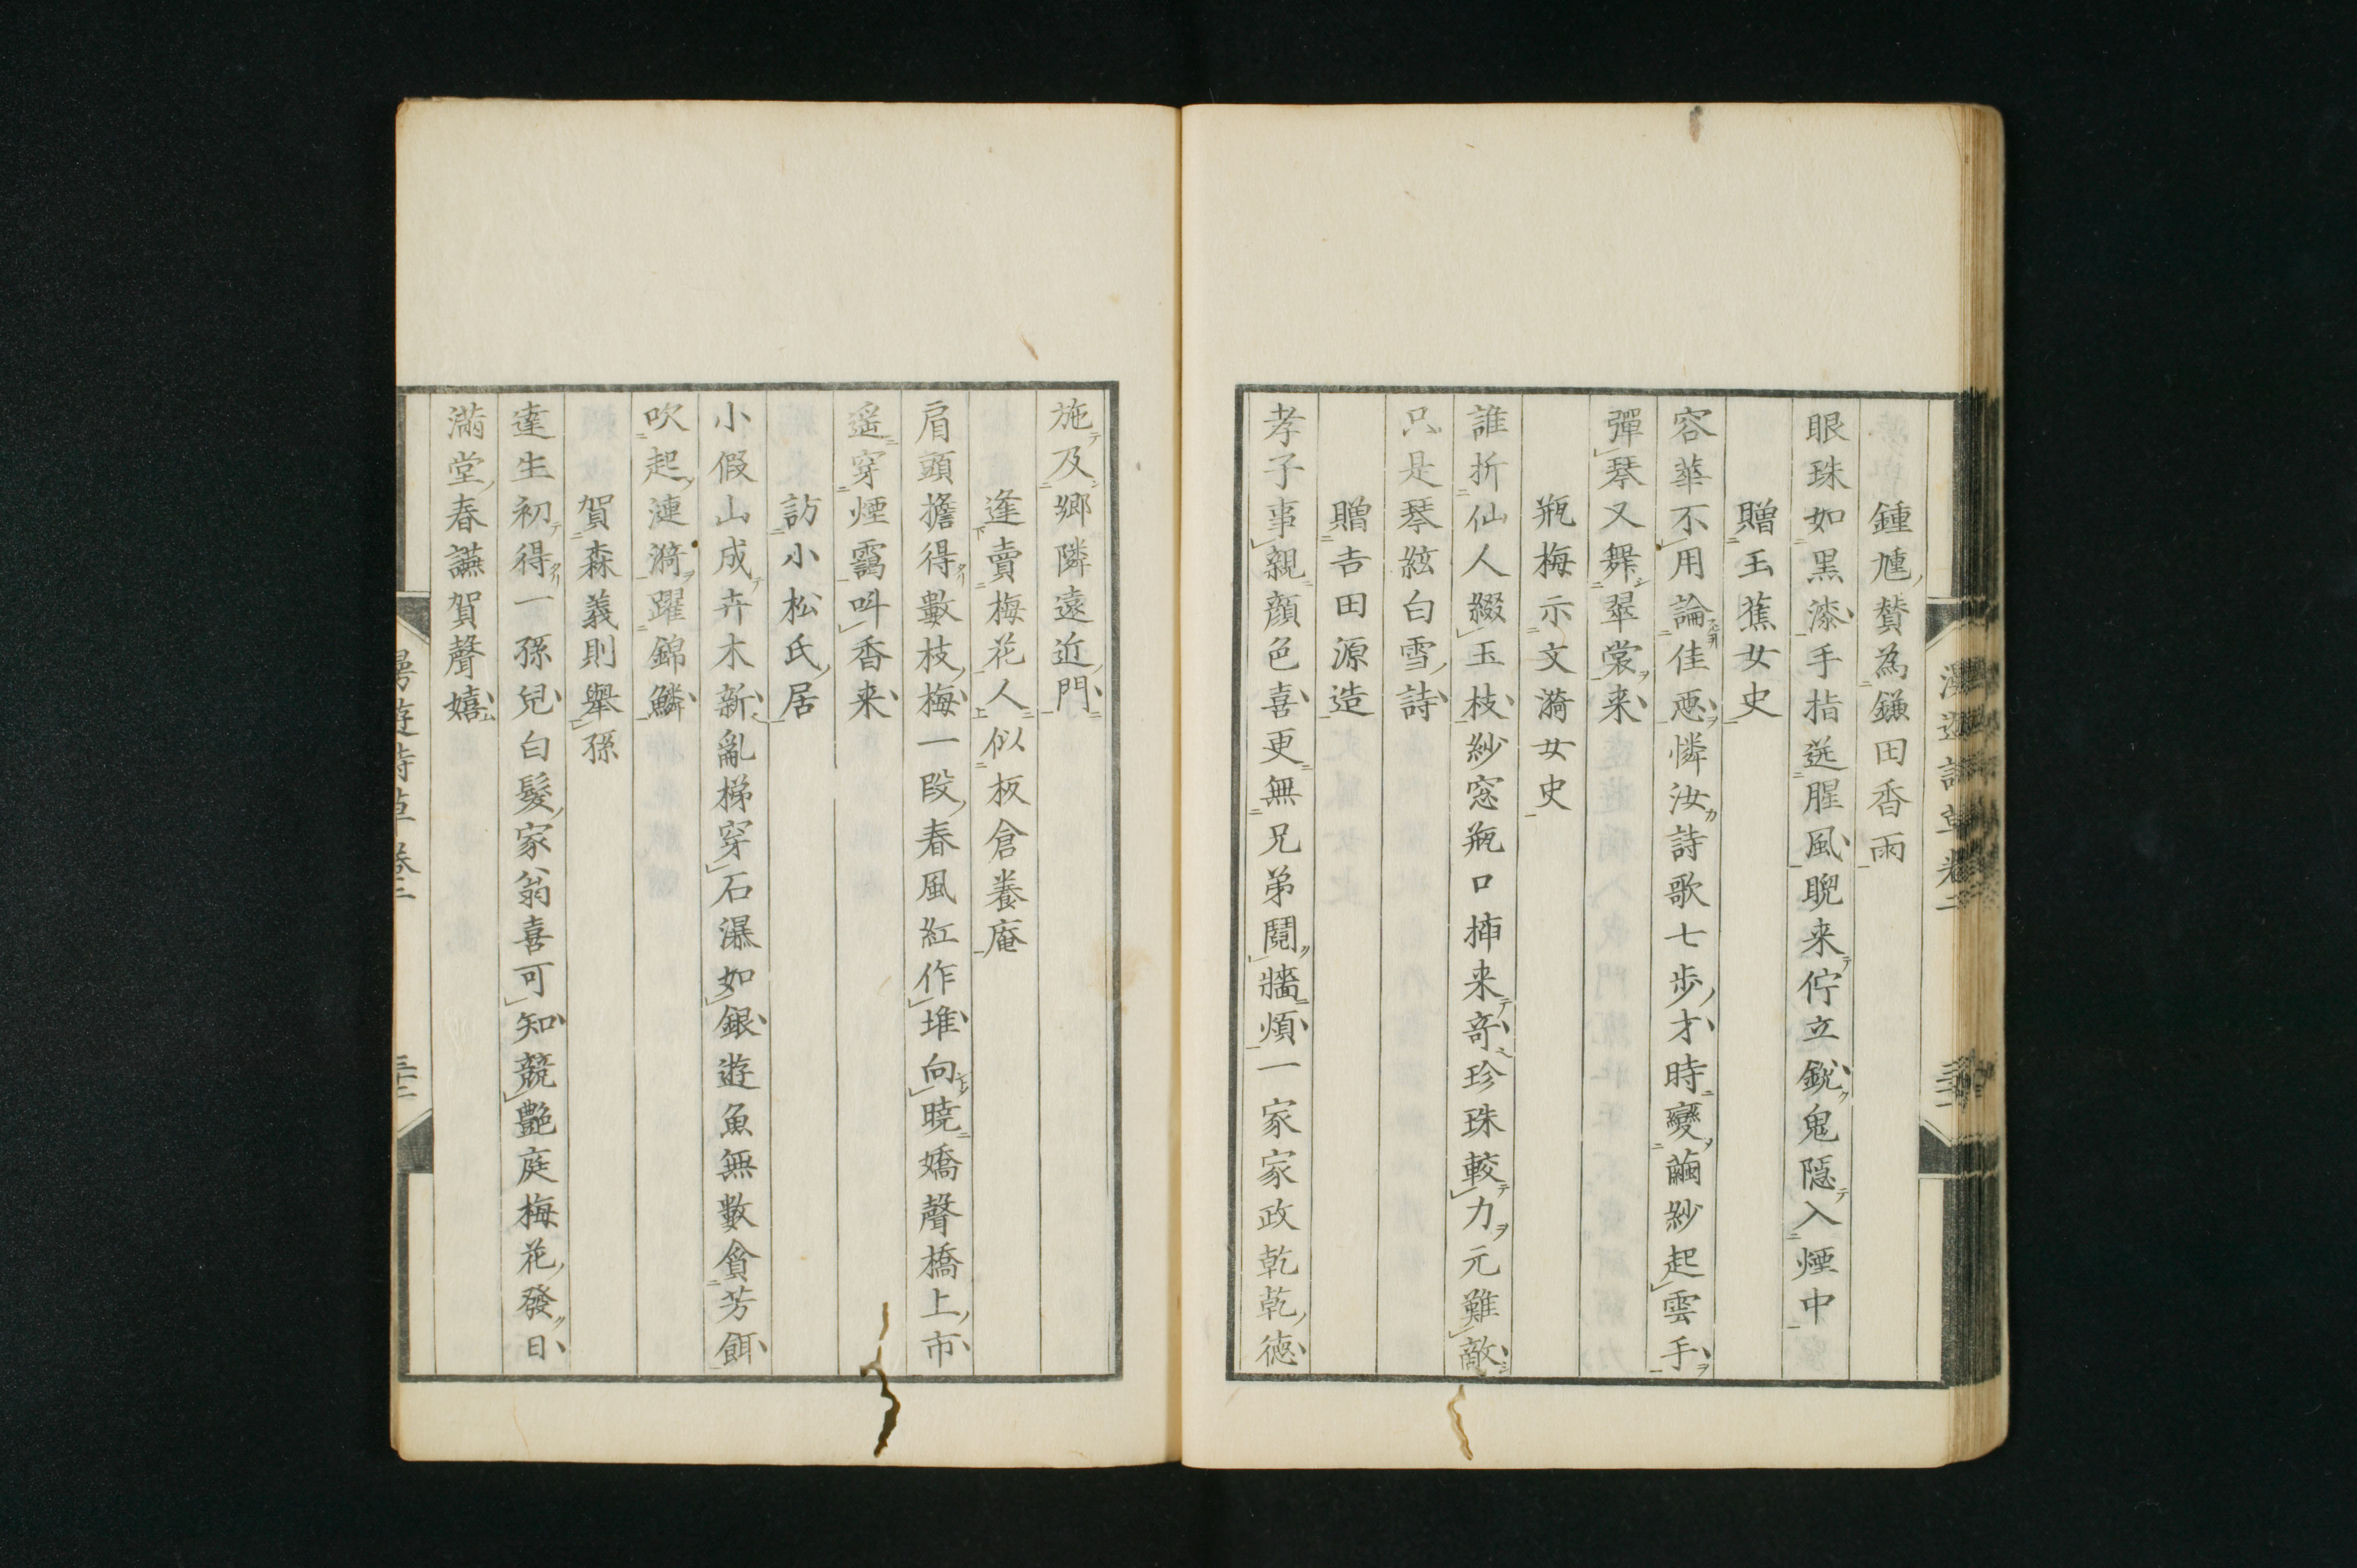 鍾馗賛為鎌田香雨
眼珠如黒漆手指選腥風睨来佇立鋭鬼隠入煙中
贈玉蕉女史
容華不用論佳惡憐汝詩歌七歩才時變繭紗起雲手
彈琴又舞翠裳来
瓶梅示文漪女史
誰折仙人綴玉枝紗窓瓶口揷来奇珍珠較力元難敵
只是琴絃白雪詩
贈吉田源造
孝子事親顔色喜更無兄弟鬩牆煩一家家政乾乾徳
施及郷隣遠近門
逢賣梅花人似板倉養庵
肩頭擔得數枝梅一段春風紅作堆向曉嬌聲橋上市
遥穿煙靄呌香来
訪小松氏居
小假山成卉木新亂梯穿石瀑如銀遊魚無數貪芳餌
吹起漣漪躍錦鱗
賀森義則舉孫
達生初得一孫兒白髮家翁喜可知競艶庭梅花發日
滿堂春讌賀聲嬉